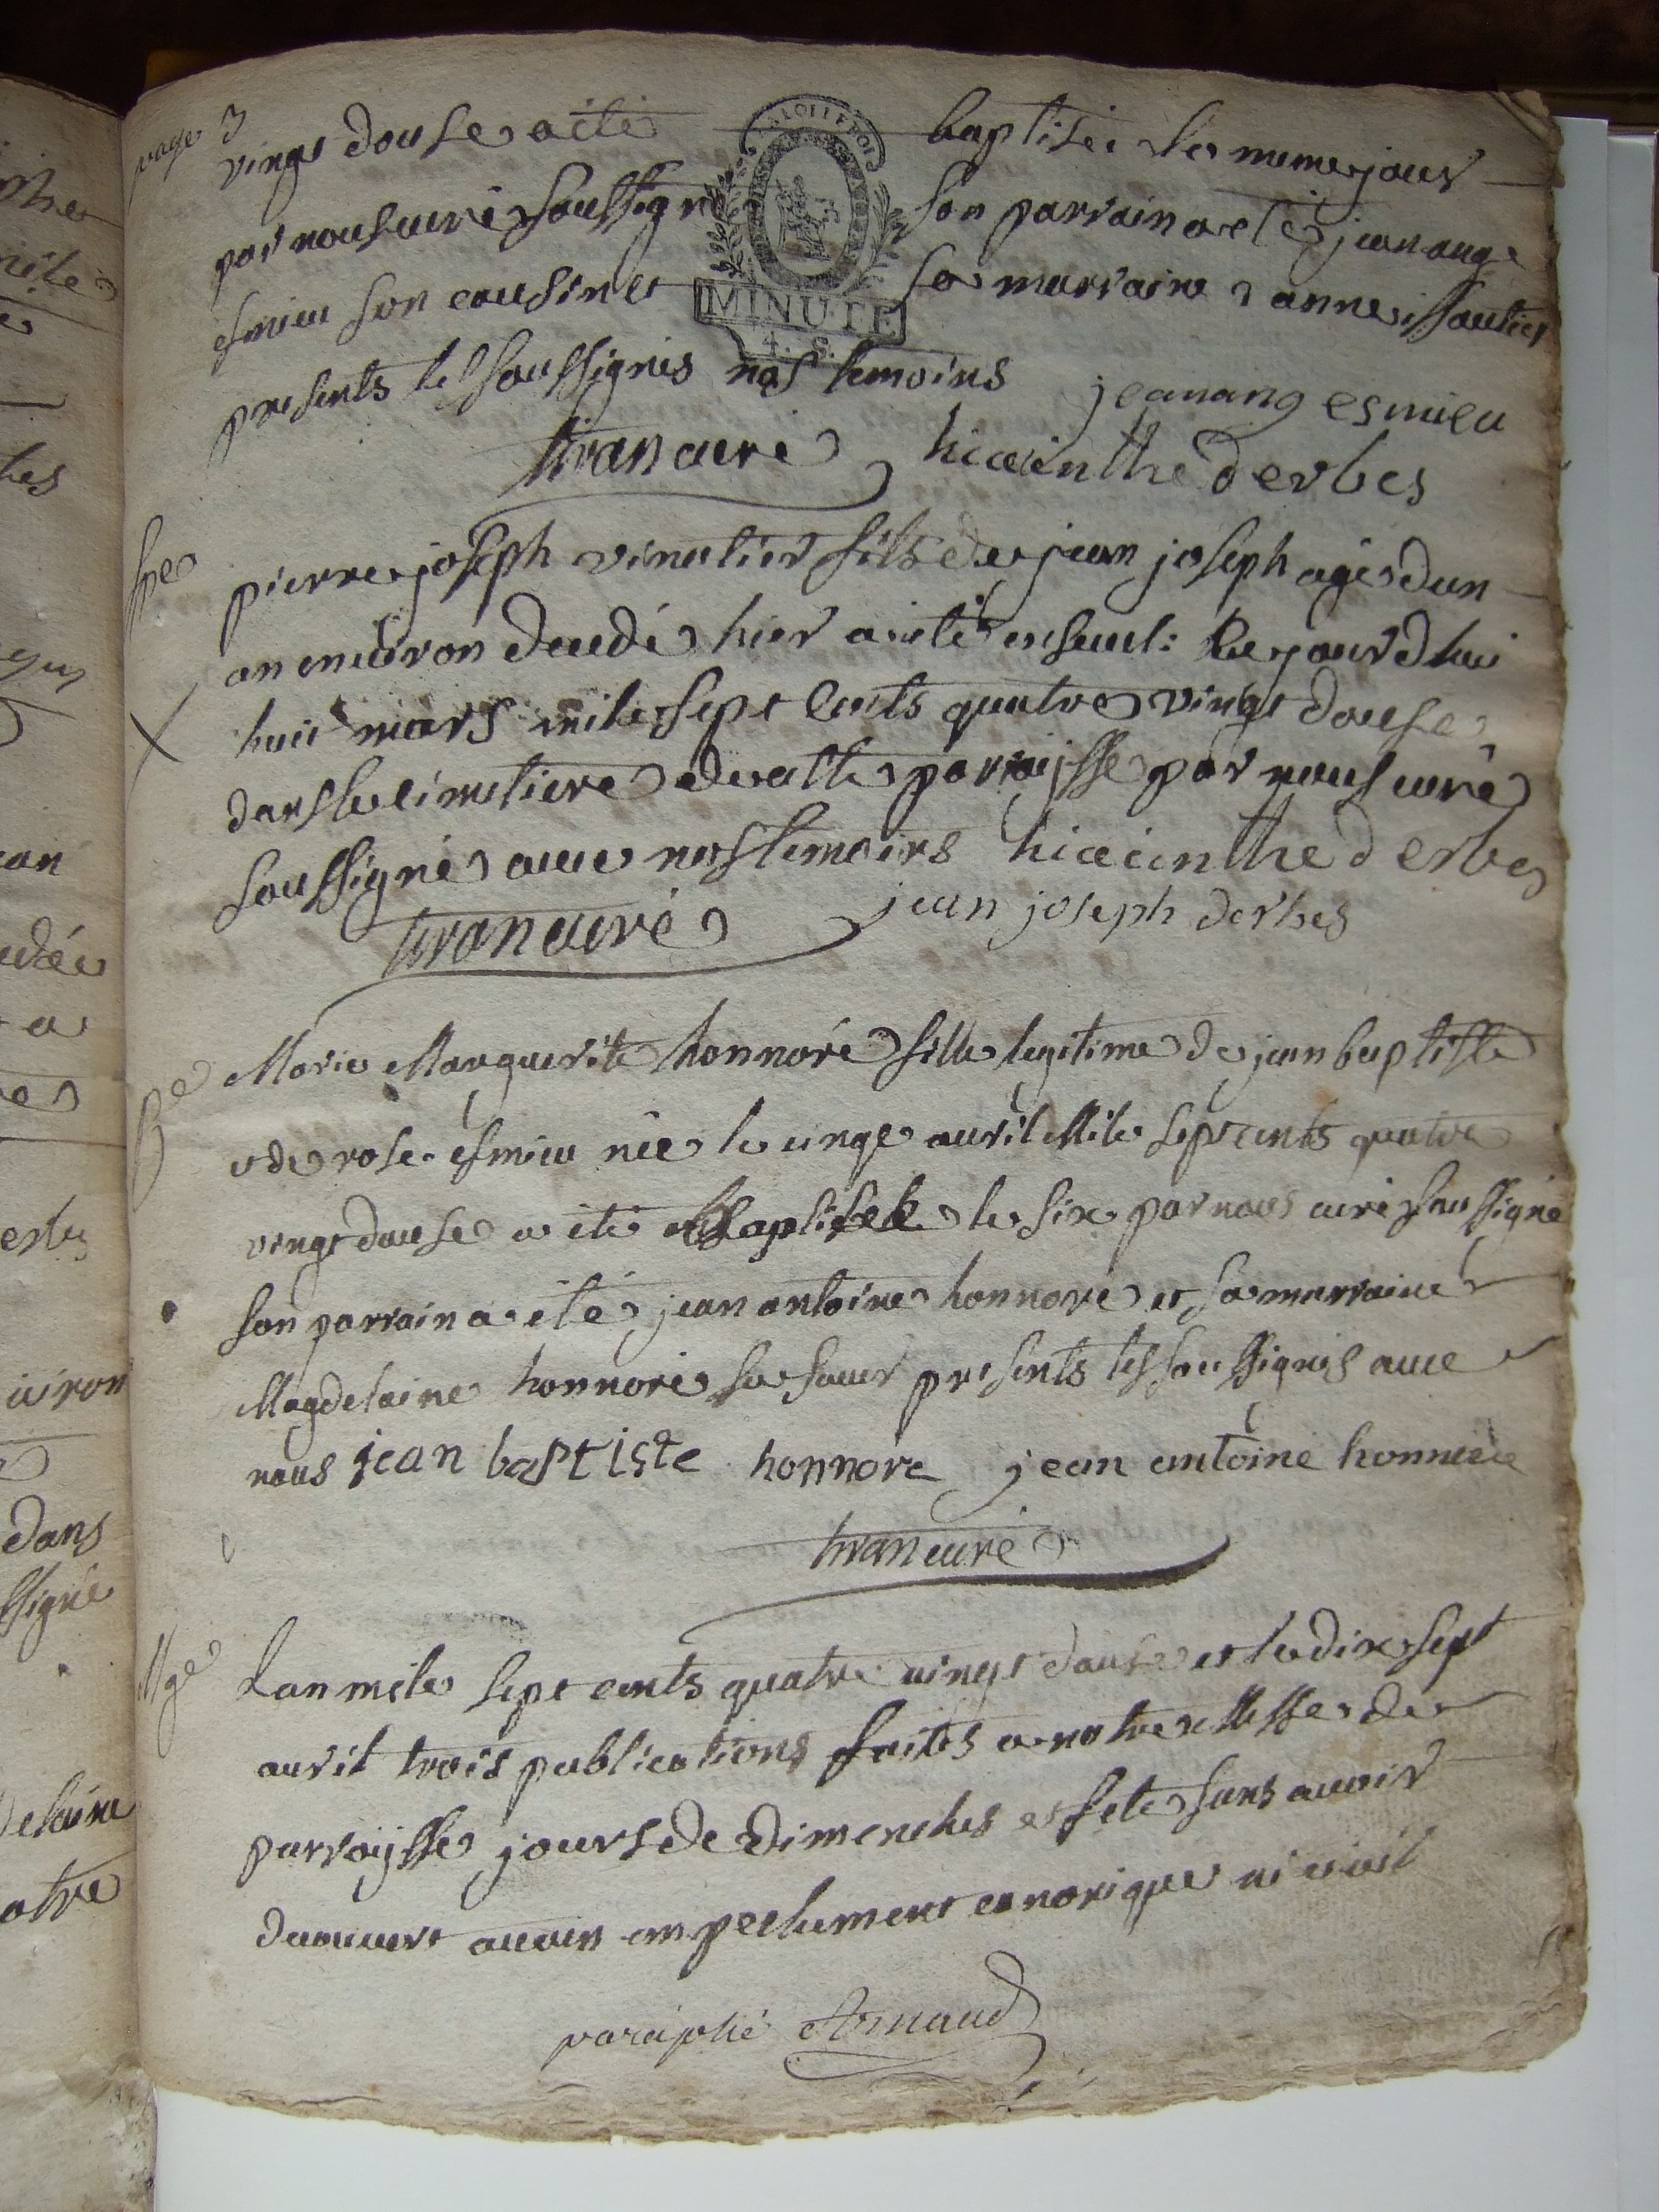 page 3
vingt douse a eté baptisée le meme jour
par nous curé soussigné son parrain a eté jean ange
esmieu son cousin et sa marraine anne issautier
presents les soussignés nos temoins jean ang esmieu
tiran curé hiacinthe derbes
spe pierre joseph vinatier fils de jean joseph agé dun
an environ decedé hier a eté enseveli ce jourdhui
huit mars mile sept cents quatre vingt douse
dans le cimetiere de cette parroisse par nous curé
soussigné avec nos temoins hiacinthe derbes
tiran curé jean joseph derbes
Be Marie Marguerite honnoré fille legitime de jean baptiste
e de rose esmieu née le cinqe avril Mile sept cents quatre
vingt douse a eté baptisée le six par nous curé soussigné
son parrain a eté jean antoine honnoré et sa marraine
Magdelaine honnoré sa soeur presents les soussignés avec
nous jean baptiste honnore jean antoine honnore
tiran curé
Mge Lan mile sept cents quatre vingt douse et le dix sept
avril trois publications faites a notre Messe de
parroisse jours de dimenches et fete sans avoir
decouvert aucun empechement canonique ni civil
paraphé Arnaud
LA LOI LE ROI
MINUTE
4. S.